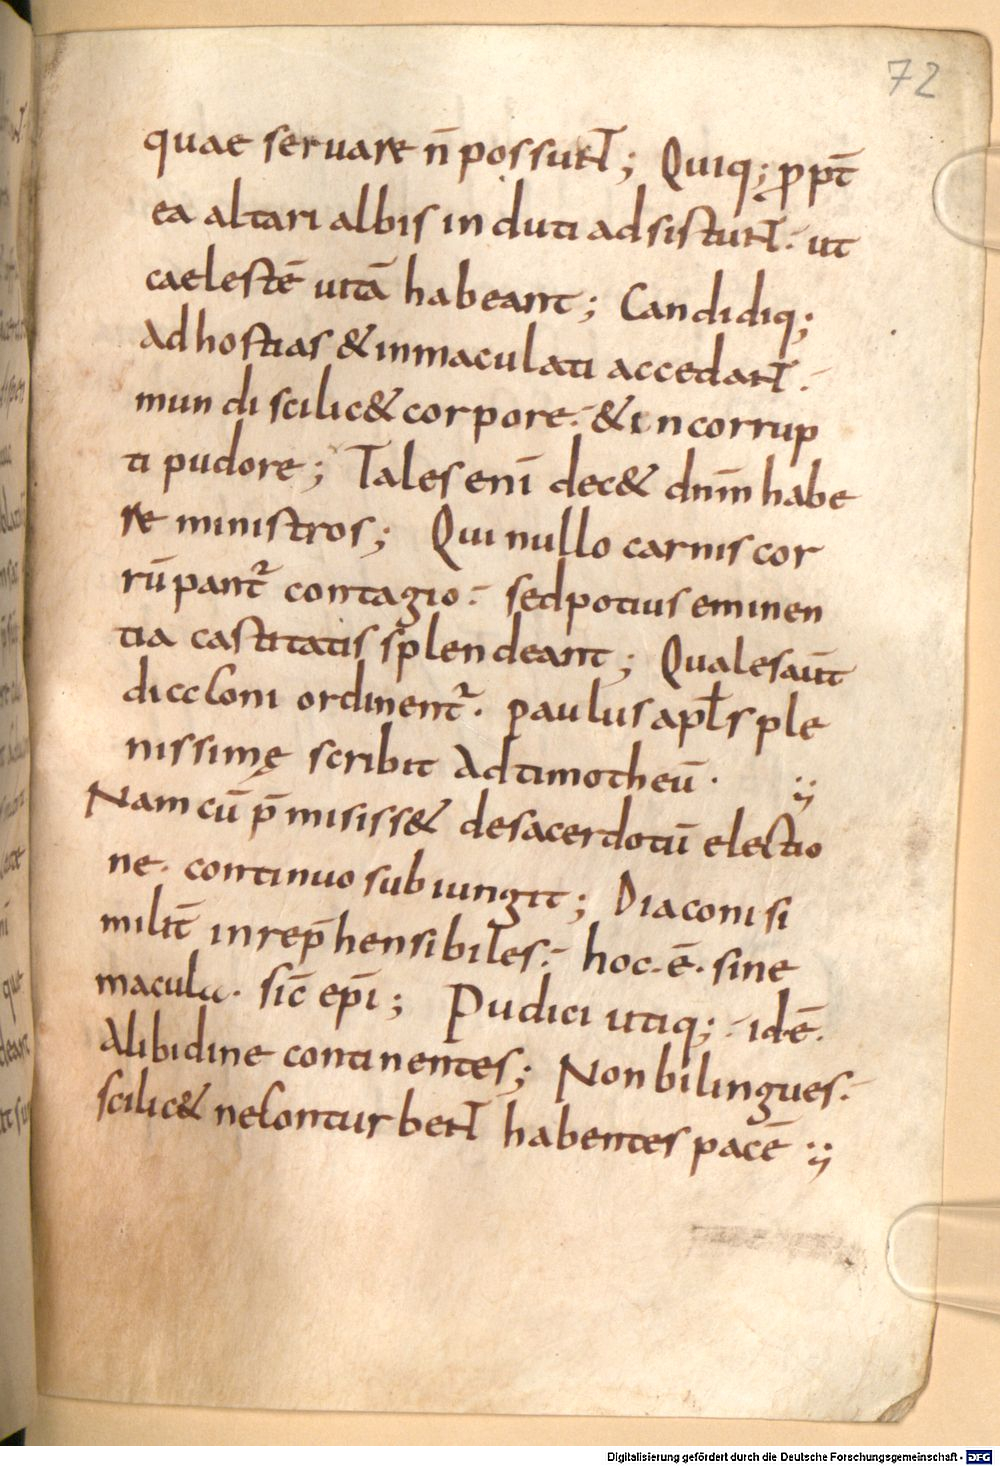 72
quae servare n̄ possunt; Quiq; ꝓpt̄
ea altari albis induti adsistunt · ut
caelestē uitā habeant; Candidiq;
Ad hostias & inmaculati accedant ·
mundi scilic& corpore · & incorrup
ti pudore; Tales eni̅ dec& dn̄m habe
re ministros; Qui nullo carnis cor
rūpant᷑ contagio · sed potius eminen
tia castitatis splendeant; Quales aūt
diaconi ordinent᷑ · paulus apl̄s ple
nissimę scribit Ad timotheū ·
Nam cū p̄misiss& de sacerdotū electio
ne · continuo subiungit; Diaconi si
milit̄ inrep̄hensibiles · hoc · ē · sine
macula · sic̄ ep̄i; Pudici utiq; · id ē ·
A libidine continentes; Non bilingues ·
scilic& ne conturbent habentes pacē
Digitalisierung gefördert durch die Deutsche Forschungsgemeinschaft - DFG